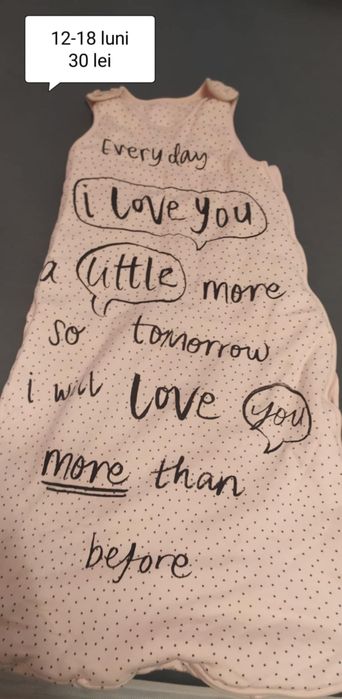 12-18 luni
30 lei
Every day
i love you
a little more
so tomorrow
i will love you
more than
before